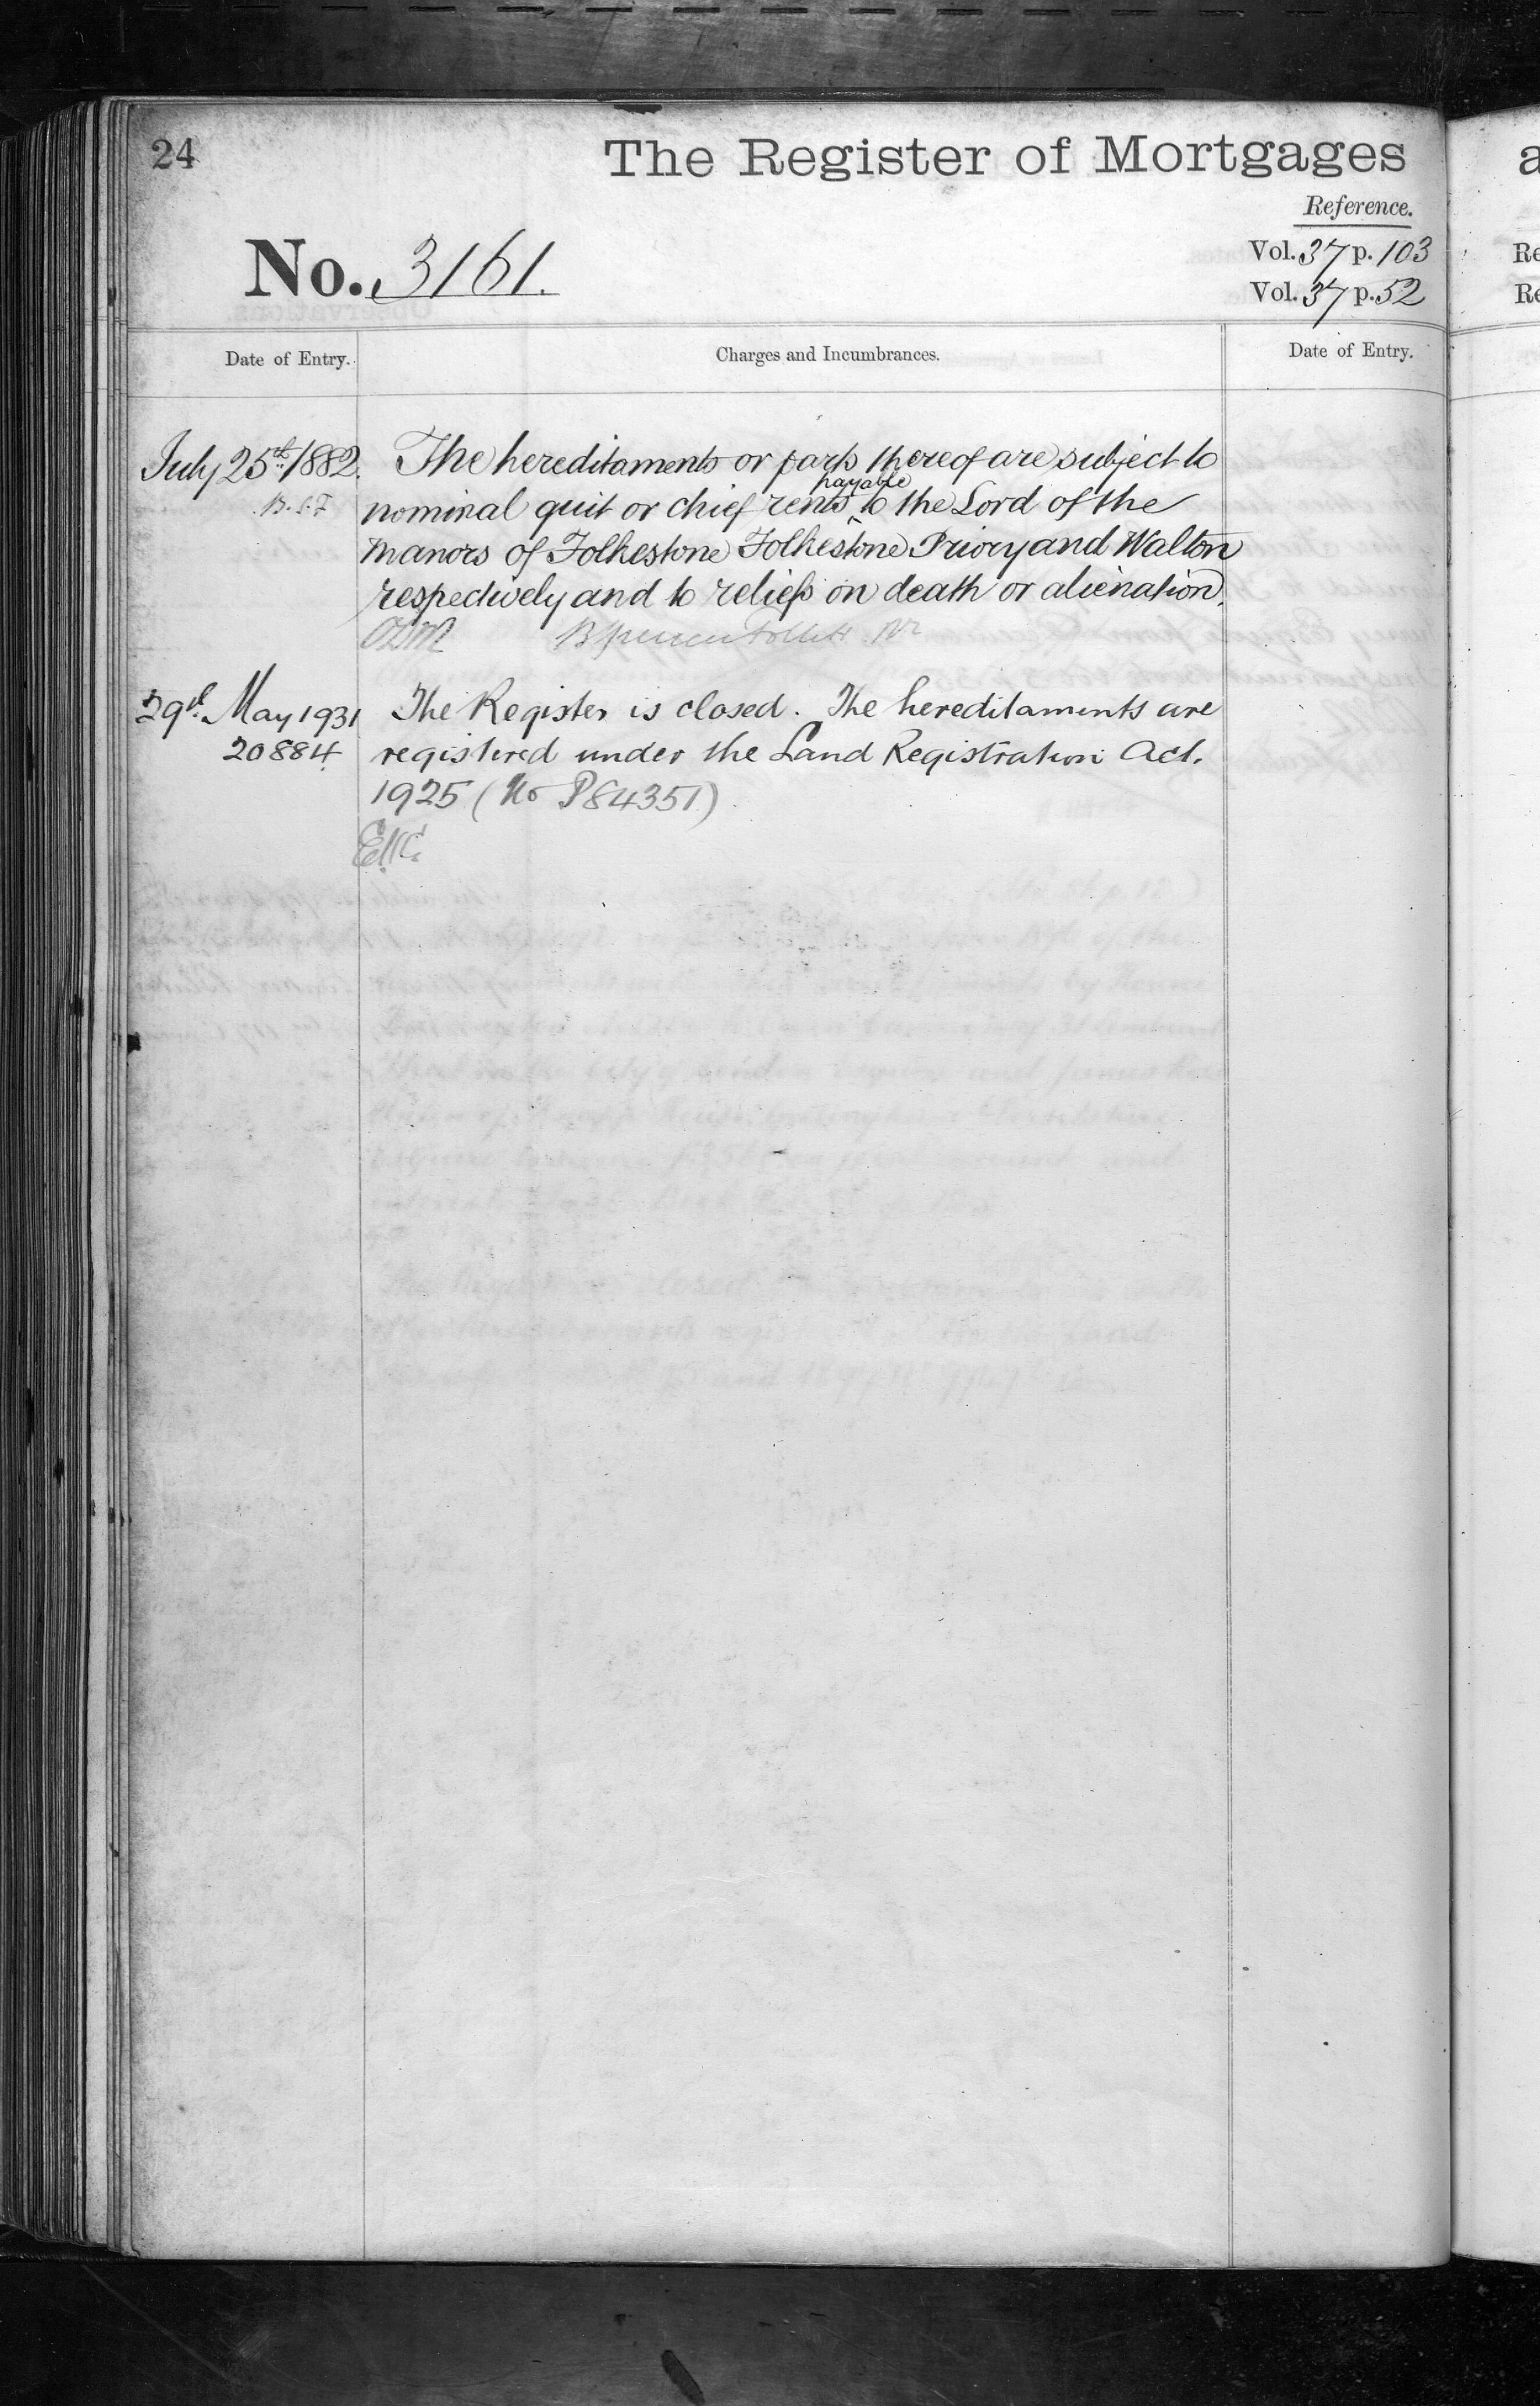 24
The Register of Mortgages
Reference.
No. 3161.
Vol. 37 p. 103
Vol. 37 p. 52
Date of Entry.
Charges and Incumbrances.
Date of Entry.
July 25th 1882.
B.S.F
The hereditaments or parts thereof are subject to
nominal quit or chief rents payable to the Lord of the
Manors of Folkestone Folkestone Priory and Walton
respectively and to reliefs on death or alienation.
29th May 1931
20884
The Register is closed. The hereditaments are
registered under the Land Registration Act.
1925 (No P84351)
Re
Re